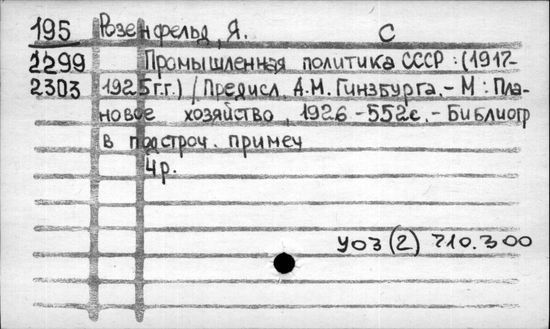 195 Розенфельд, Я. С
1299 Промышленная политика СССР : (1917-
2303 1925гг.) / Предисл. А.М. Гинзбурга. - М : Пла-
новое хозяйство, 1926 - 552с. - Библиогр
в подстроч. примеч
4р.
У03 (2) 710.300